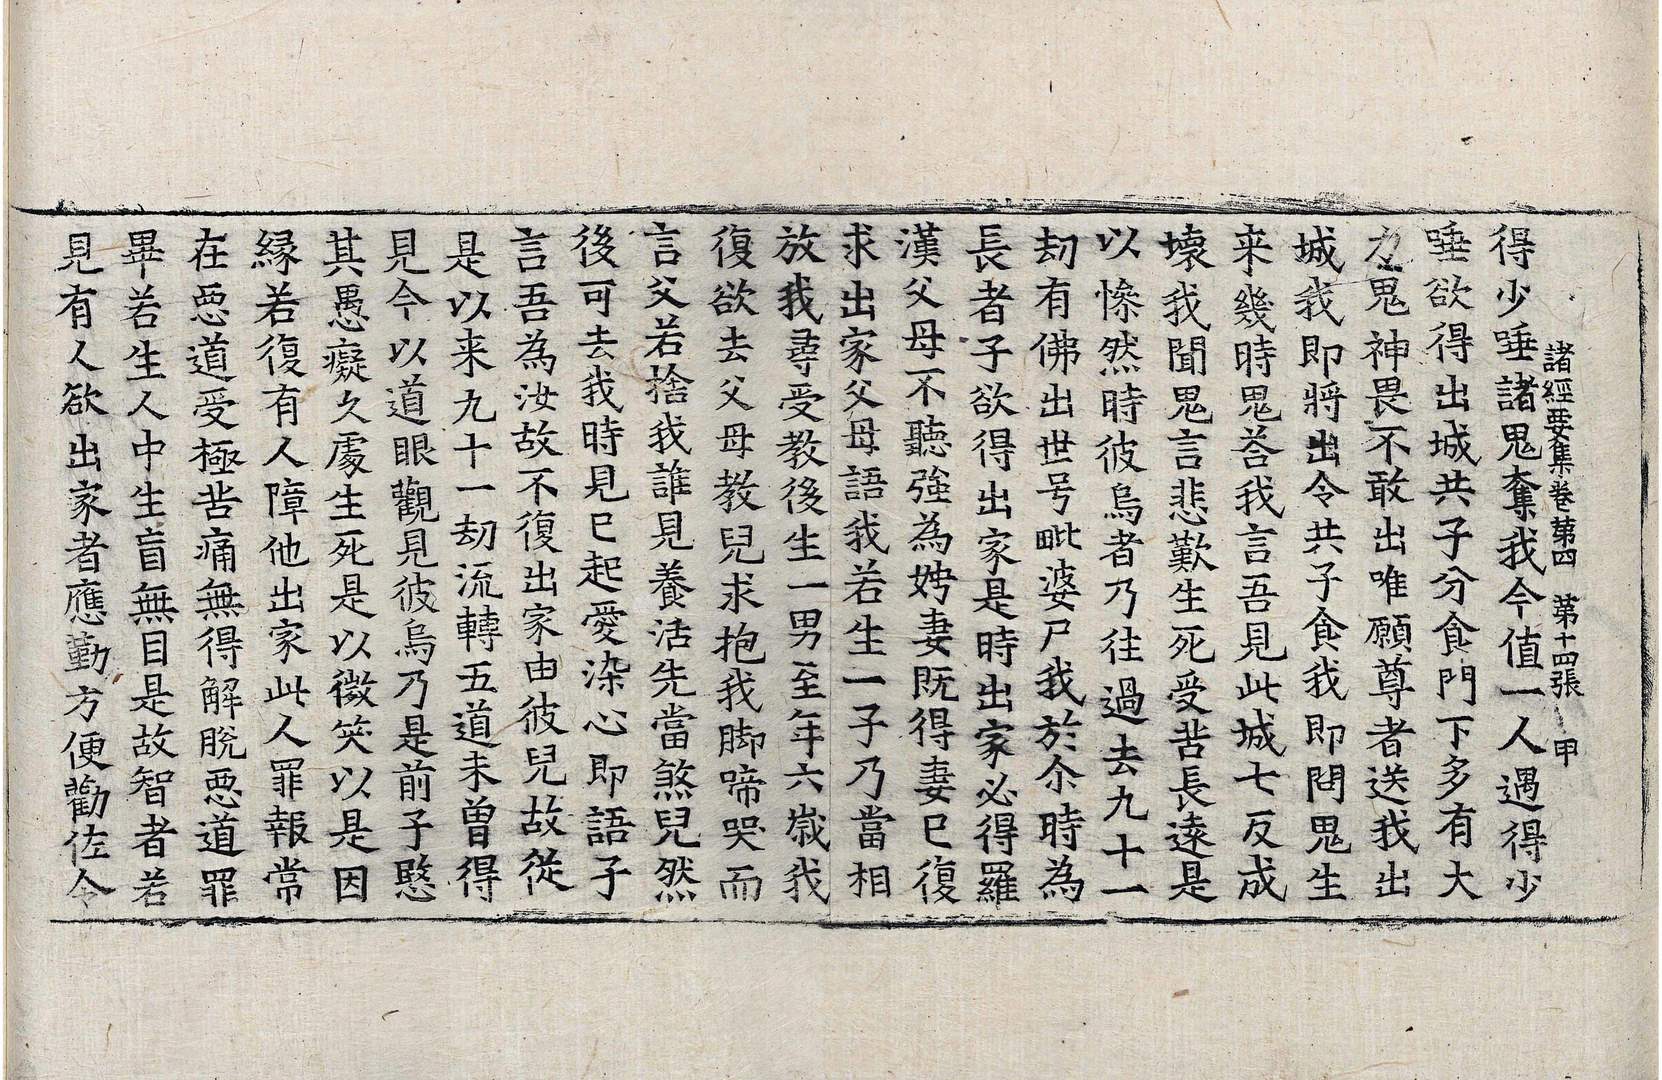 諸經要集卷第四　第十四張　甲
得少唾諸鬼奪我今值一人遇得少
唾欲得出城共子分食門下多有大
力鬼神畏不敢出唯願尊者送我出
城我即將出令共子食我即問鬼生
来幾時鬼荅我言吾見此城七反成
壞我聞鬼言悲歎生死受苦長遠是
以慘然時彼烏者乃往過去九十一
劫有佛出世号毗婆尸我於尒時為
長者子欲得出家是時出家必得羅
漢父母不聽強為娉妻既得妻已復
求出家父母語我若生一子乃當相
放我尋受教後生一男至年六歲我
復欲去父母教兒求抱我脚啼哭而
言父若捨我誰見養活先當煞兒然
後可去我時見已起愛染心即語子
言吾為汝故不復出家由彼兒故從
是以来九十一劫流轉五道未曽得
見今以道眼觀見彼烏乃是前子愍
其愚癡久處生死是以微笑以是因
縁若復有人障他出家此人罪報常
在惡道受極苦痛無得解脫惡道罪
畢若生人中生盲無目是故智者若
見有人欲出家者應勤方便勸佐令